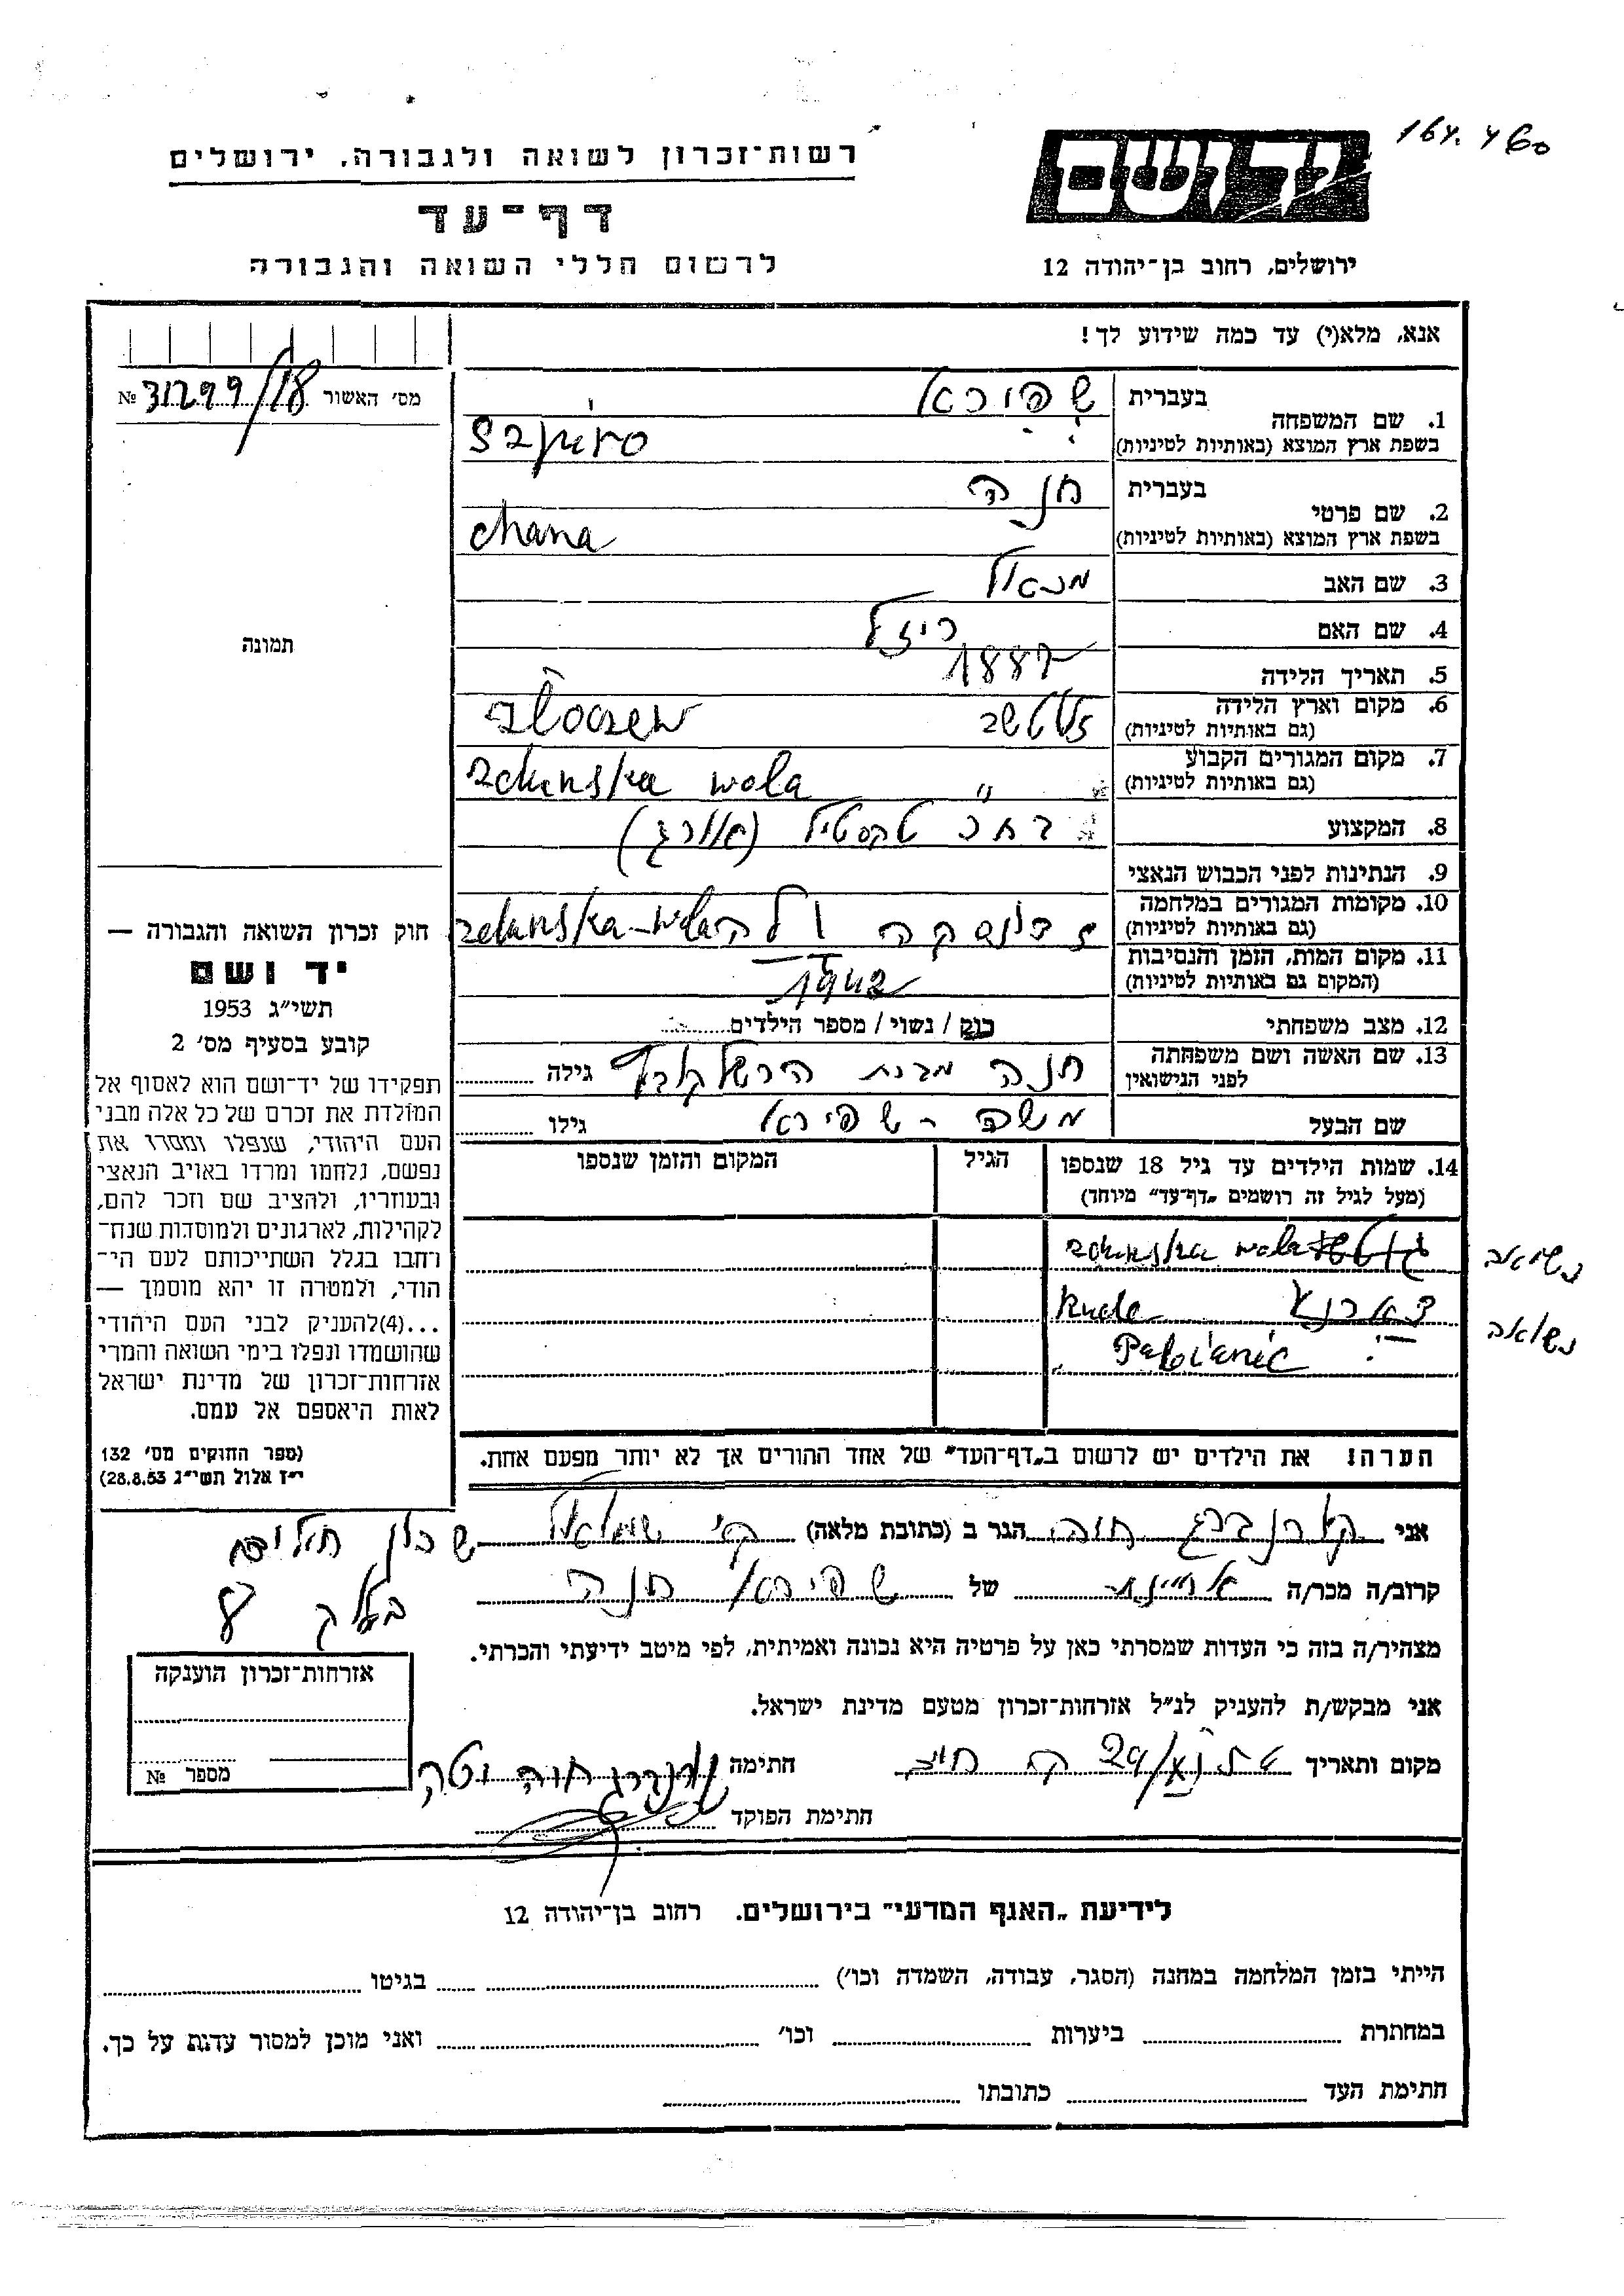 164. 460
רשות־זכרון לשואה ולגבורה, ירושלים
דף־עד
לרשום חללי השואה והגבורה
יד ושם
ירושלים, רחוב בן־יהודה 12
אנא, מלא(י) עד כמה שידוע לך!
מס׳ האשור № 31299/18
תמונה
1. שם המשפחה בעברית שפירא
בשפת ארץ המוצא (באותיות לטיניות) Szpiro
2. שם פרטי בעברית חנה
בשפת ארץ המוצא (באותיות לטיניות) Chana
3. שם האב
4. שם האם רייזל
5. תאריך הלידה 1887
6. מקום וארץ הלידה
(גם באותיות לטיניות) Złoczew
7. מקום המגורים הקבוע
(גם באותיות לטיניות) " Zdunska wola
8. המקצוע טקסטיל (אורג)
9. הנתינות לפני הכבוש הנאצי
10. מקומות המגורים במלחמה
(גם באותיות לטיניות) זדונסקה ולה Zdunska-wola
11. מקום המות, הזמן והנסיבות
(המקום גם באותיות לטיניות) 1942
12. מצב משפחתי רוק / נשוי / מספר הילדים
13. שם האשה ושם משפחתה
לפני הנישואין חנה מבית גילה
שם הבעל משה - שפירא גילו
14. שמות הילדים עד גיל 18 שנספו הגיל המקום והזמן שנספו
(מעל לגיל זה רושמים „דף־עד” מיוחד)
zdunska wola נשואה
Ruda נשואה
Pabianic
הערה! את הילדים יש לרשום ב„דף־העד” של אחד ההורים אך לא יותר מפעם אחת.
חוק זכרון השואה והגבורה —
יד ושם
תשי״ג 1953
קובע בסעיף מס׳ 2
תפקידו של יד־ושם הוא לאסוף אל
המולדת את זכרם של כל אלה מבני
העם היהודי, שנפלו ומסרו את
נפשם, נלחמו ומרדו באויב הנאצי
ובעוזריו, ולהציב שם וזכר להם,
לקהילות, לארגונים ולמוסדות שנח־
רחבו בגלל השתייכותם לעם הי־
הודי, ולמטרה זו יהא מוסמך —
...(4) להעניק לבני העם היהודי
שהושמדו ונפלו בימי השואה והמרי
אזרחות־זכרון של מדינת ישראל
לאות היאספם אל עמם.
(ספר החוקים מס׳ 132
י״ז אלול תשי״ג 28.8.53)
אני חוה הגר ב (כתובת מלאה) ק׳ שמואל שכון
8
קרוב/ה מכר/ה של שפירא חנה
מצהיר/ה בזה כי העדות שמסרתי כאן על פרטיה היא נכונה ואמיתית, לפי מיטב ידיעתי והכרתי.
אני מבקש/ת להעניק לנ״ל אזרחות־זכרון מטעם מדינת ישראל.
מקום ותאריך ק. חיים חתימה חוה
חתימת הפוקד
אזרחות־זכרון הוענקה
מספר №
לידיעת „האגף המדעי” בירושלים. רחוב בן־יהודה 12
הייתי בזמן המלחמה במחנה (הסגר, עבודה, השמדה וכו׳) בגיטו
במחתרת ביערות וכו׳ ואני מוכן למסור עדות על כך.
חתימת העד כתובתו